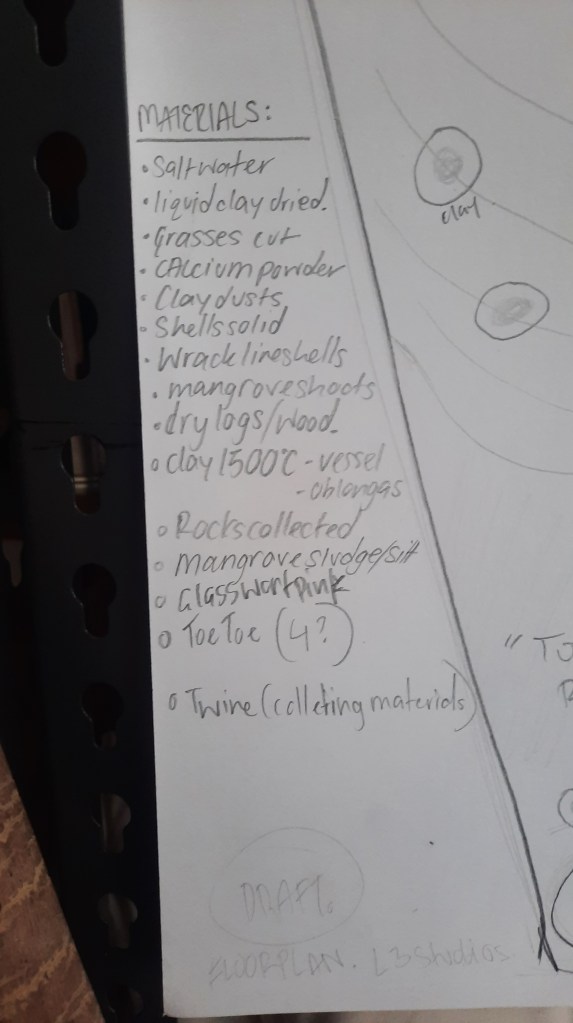 MATERIALS:
• Saltwater
• liquid clay dried.
• Grasses cut
• CAlcium powder
• Clay dusts
• Shells solid
• Wrack line shells
• mangrove shoots
• dry logs/wood.
• clay 1500°C - vessel
- oblongas
• Rocks collected
• mangrove sludge/silt
• Glasswort pink
• ToeToe (4?)
• Twine (colleting materials)
DRAFT.
FLOORPLAN. L3 studios
clay
"TO